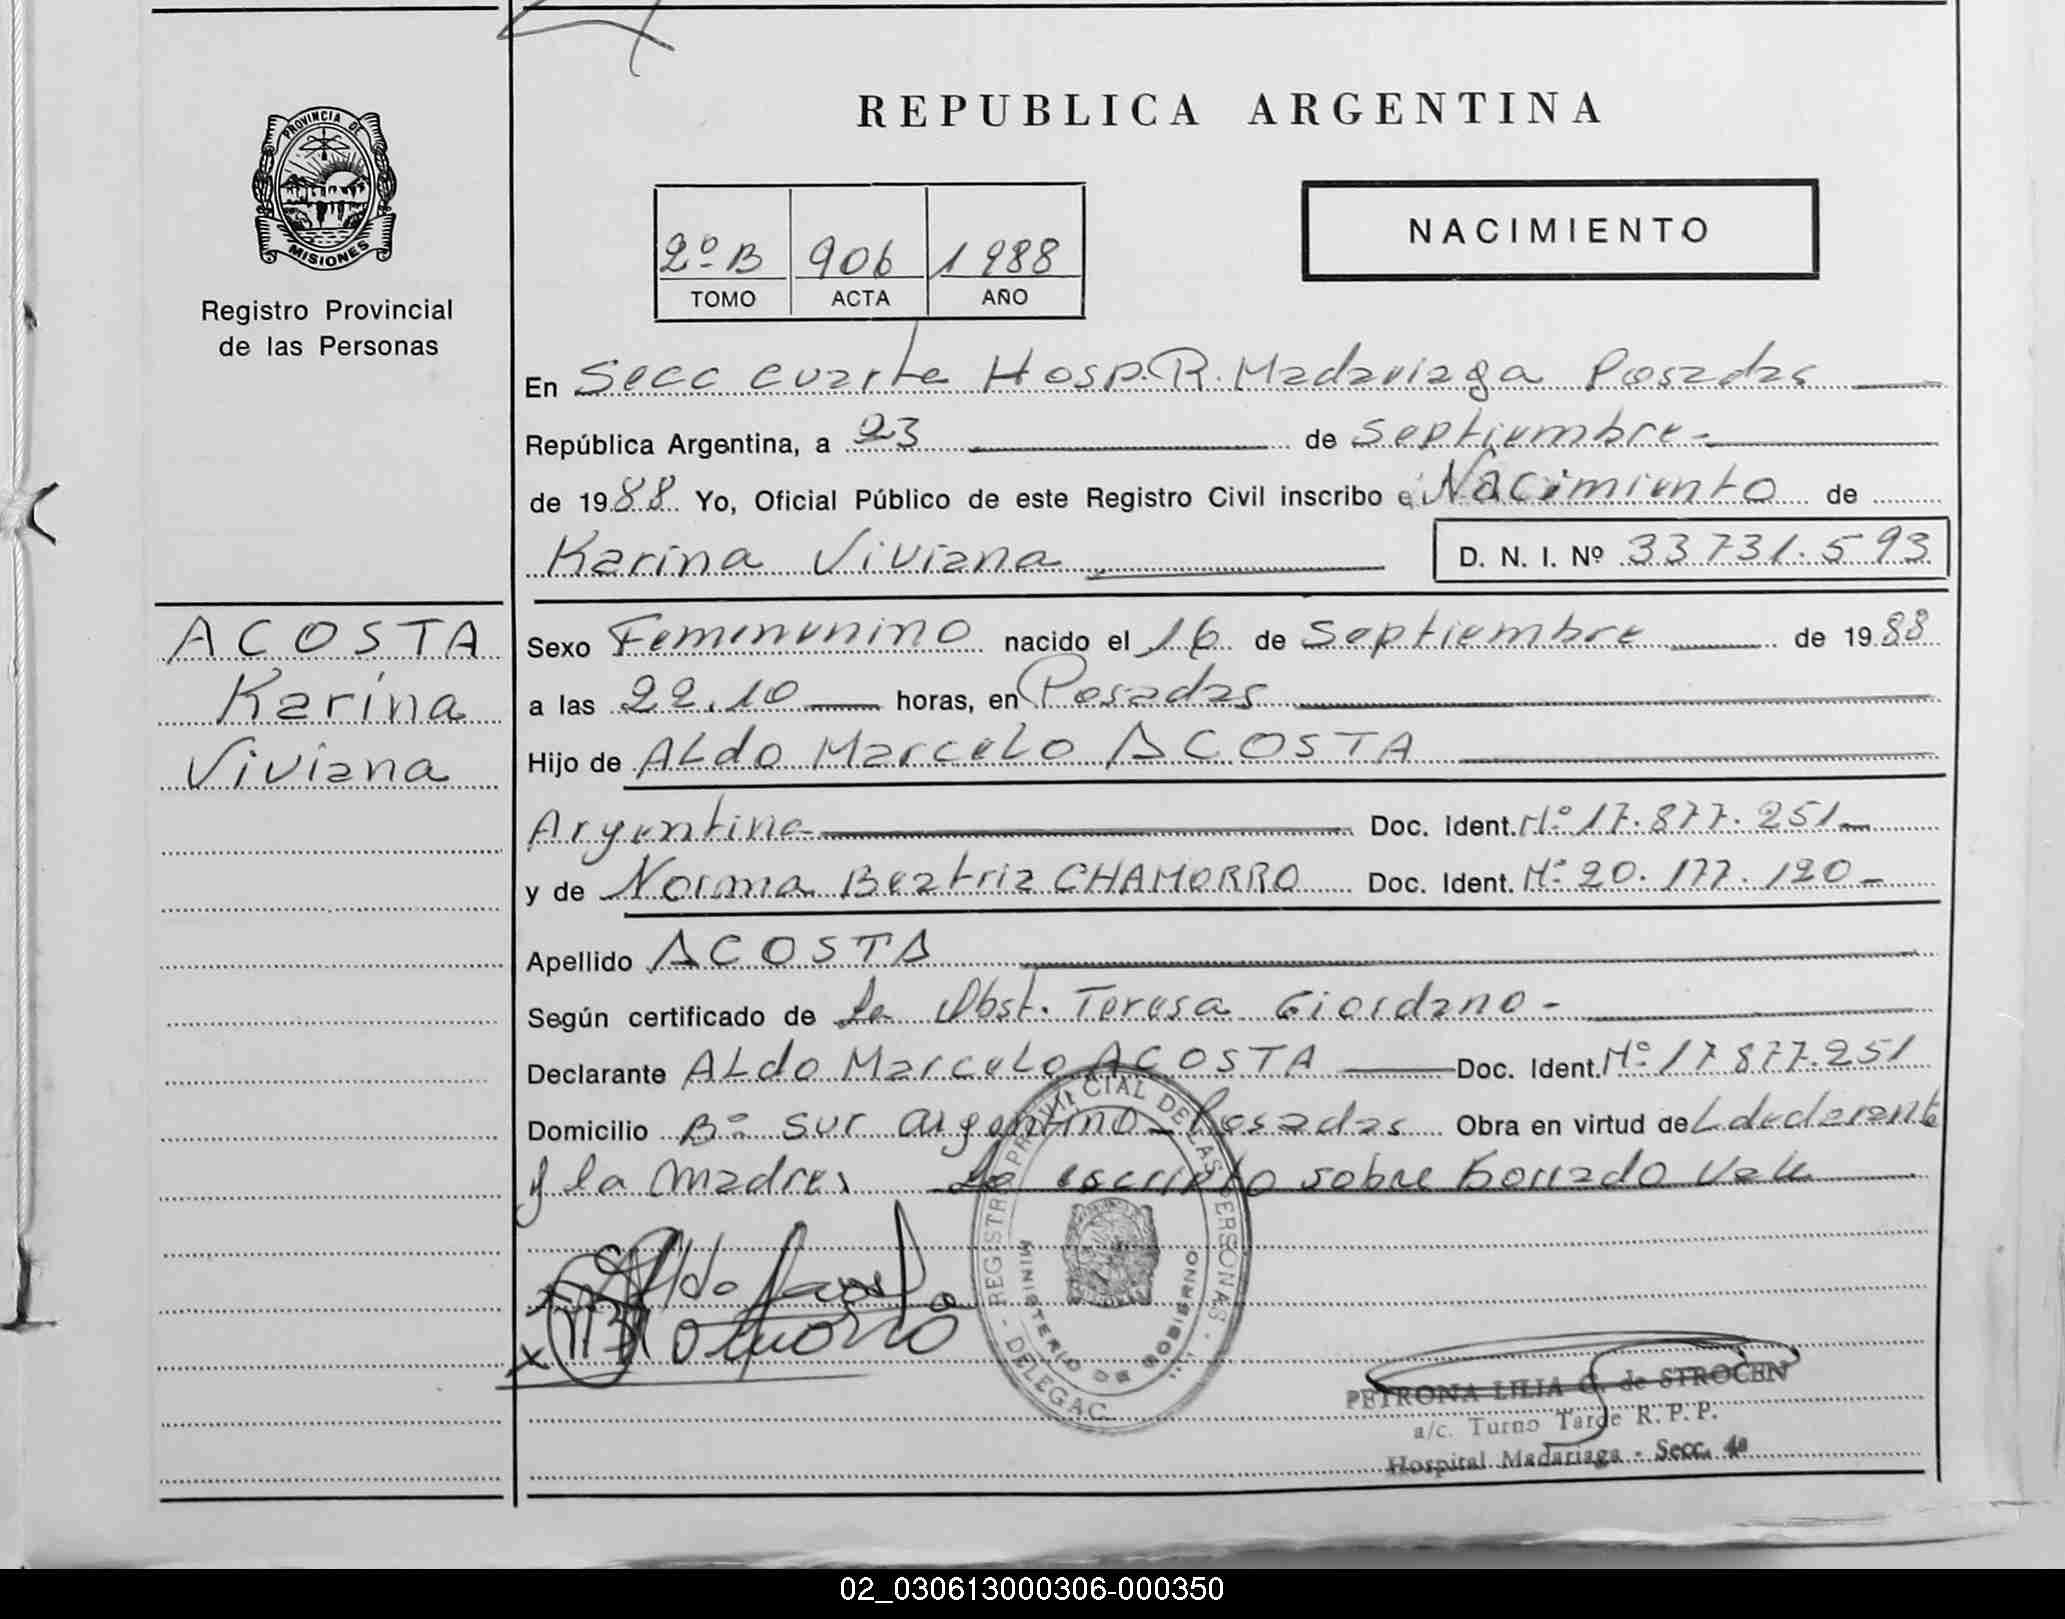 PROVINCIA DE
MISIONES
Registro Provincial
de las Personas
REPUBLICA ARGENTINA
2º B 906 1988
TOMO ACTA AÑO
NACIMIENTO
En Secc cuarta Hosp. R. Madariaga Posadas
República Argentina, a 23 de septiembre-
de 1988 Yo, Oficial Público de este Registro Civil inscribo el Nacimiento de
Karina Viviana D. N. I. Nº 33731.593
ACOSTA
Karina
Viviana
Sexo Femenunino nacido el 16 de Septiembre de 1988
a las 22.10 horas, en Posadas
Hijo de ALdo Marcelo ACOSTA
Argentina Doc. Ident. Nº 17.877.251-
y de Norma Beatriz CHAMORRO Doc. Ident. Nº 20.177.120-
Apellido ACOSTA
Según certificado de La Obst. Teresa Giordano-
Declarante ALdo Marcelo ACOSTA Doc. Ident. Nº 17877.251
Domicilio Bº sur argentino- Posadas Obra en virtud de L declarante
y la madre. Lo escripto sobre borrado vale
REGISTRO PROVINCIAL DE LAS PERSONAS - DELEGAC.
MINISTERIO DE GOBIERNO
Aldo
PETRONA LILIA G. de STROCEN
a/c. Turno Tarde R.P.P.
Hospital Madariaga - Secc. 4ª
02_030613000306-000350